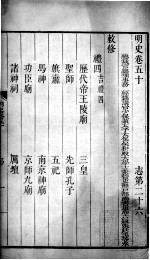 明史卷五十 志第二十六
敕修
禮四 吉禮四
歷代帝王陵廟 三皇
聖師 先師孔子
旗纛 五祀
馬神 南京神廟
功臣廟 京師九廟
諸神祠 厲壇